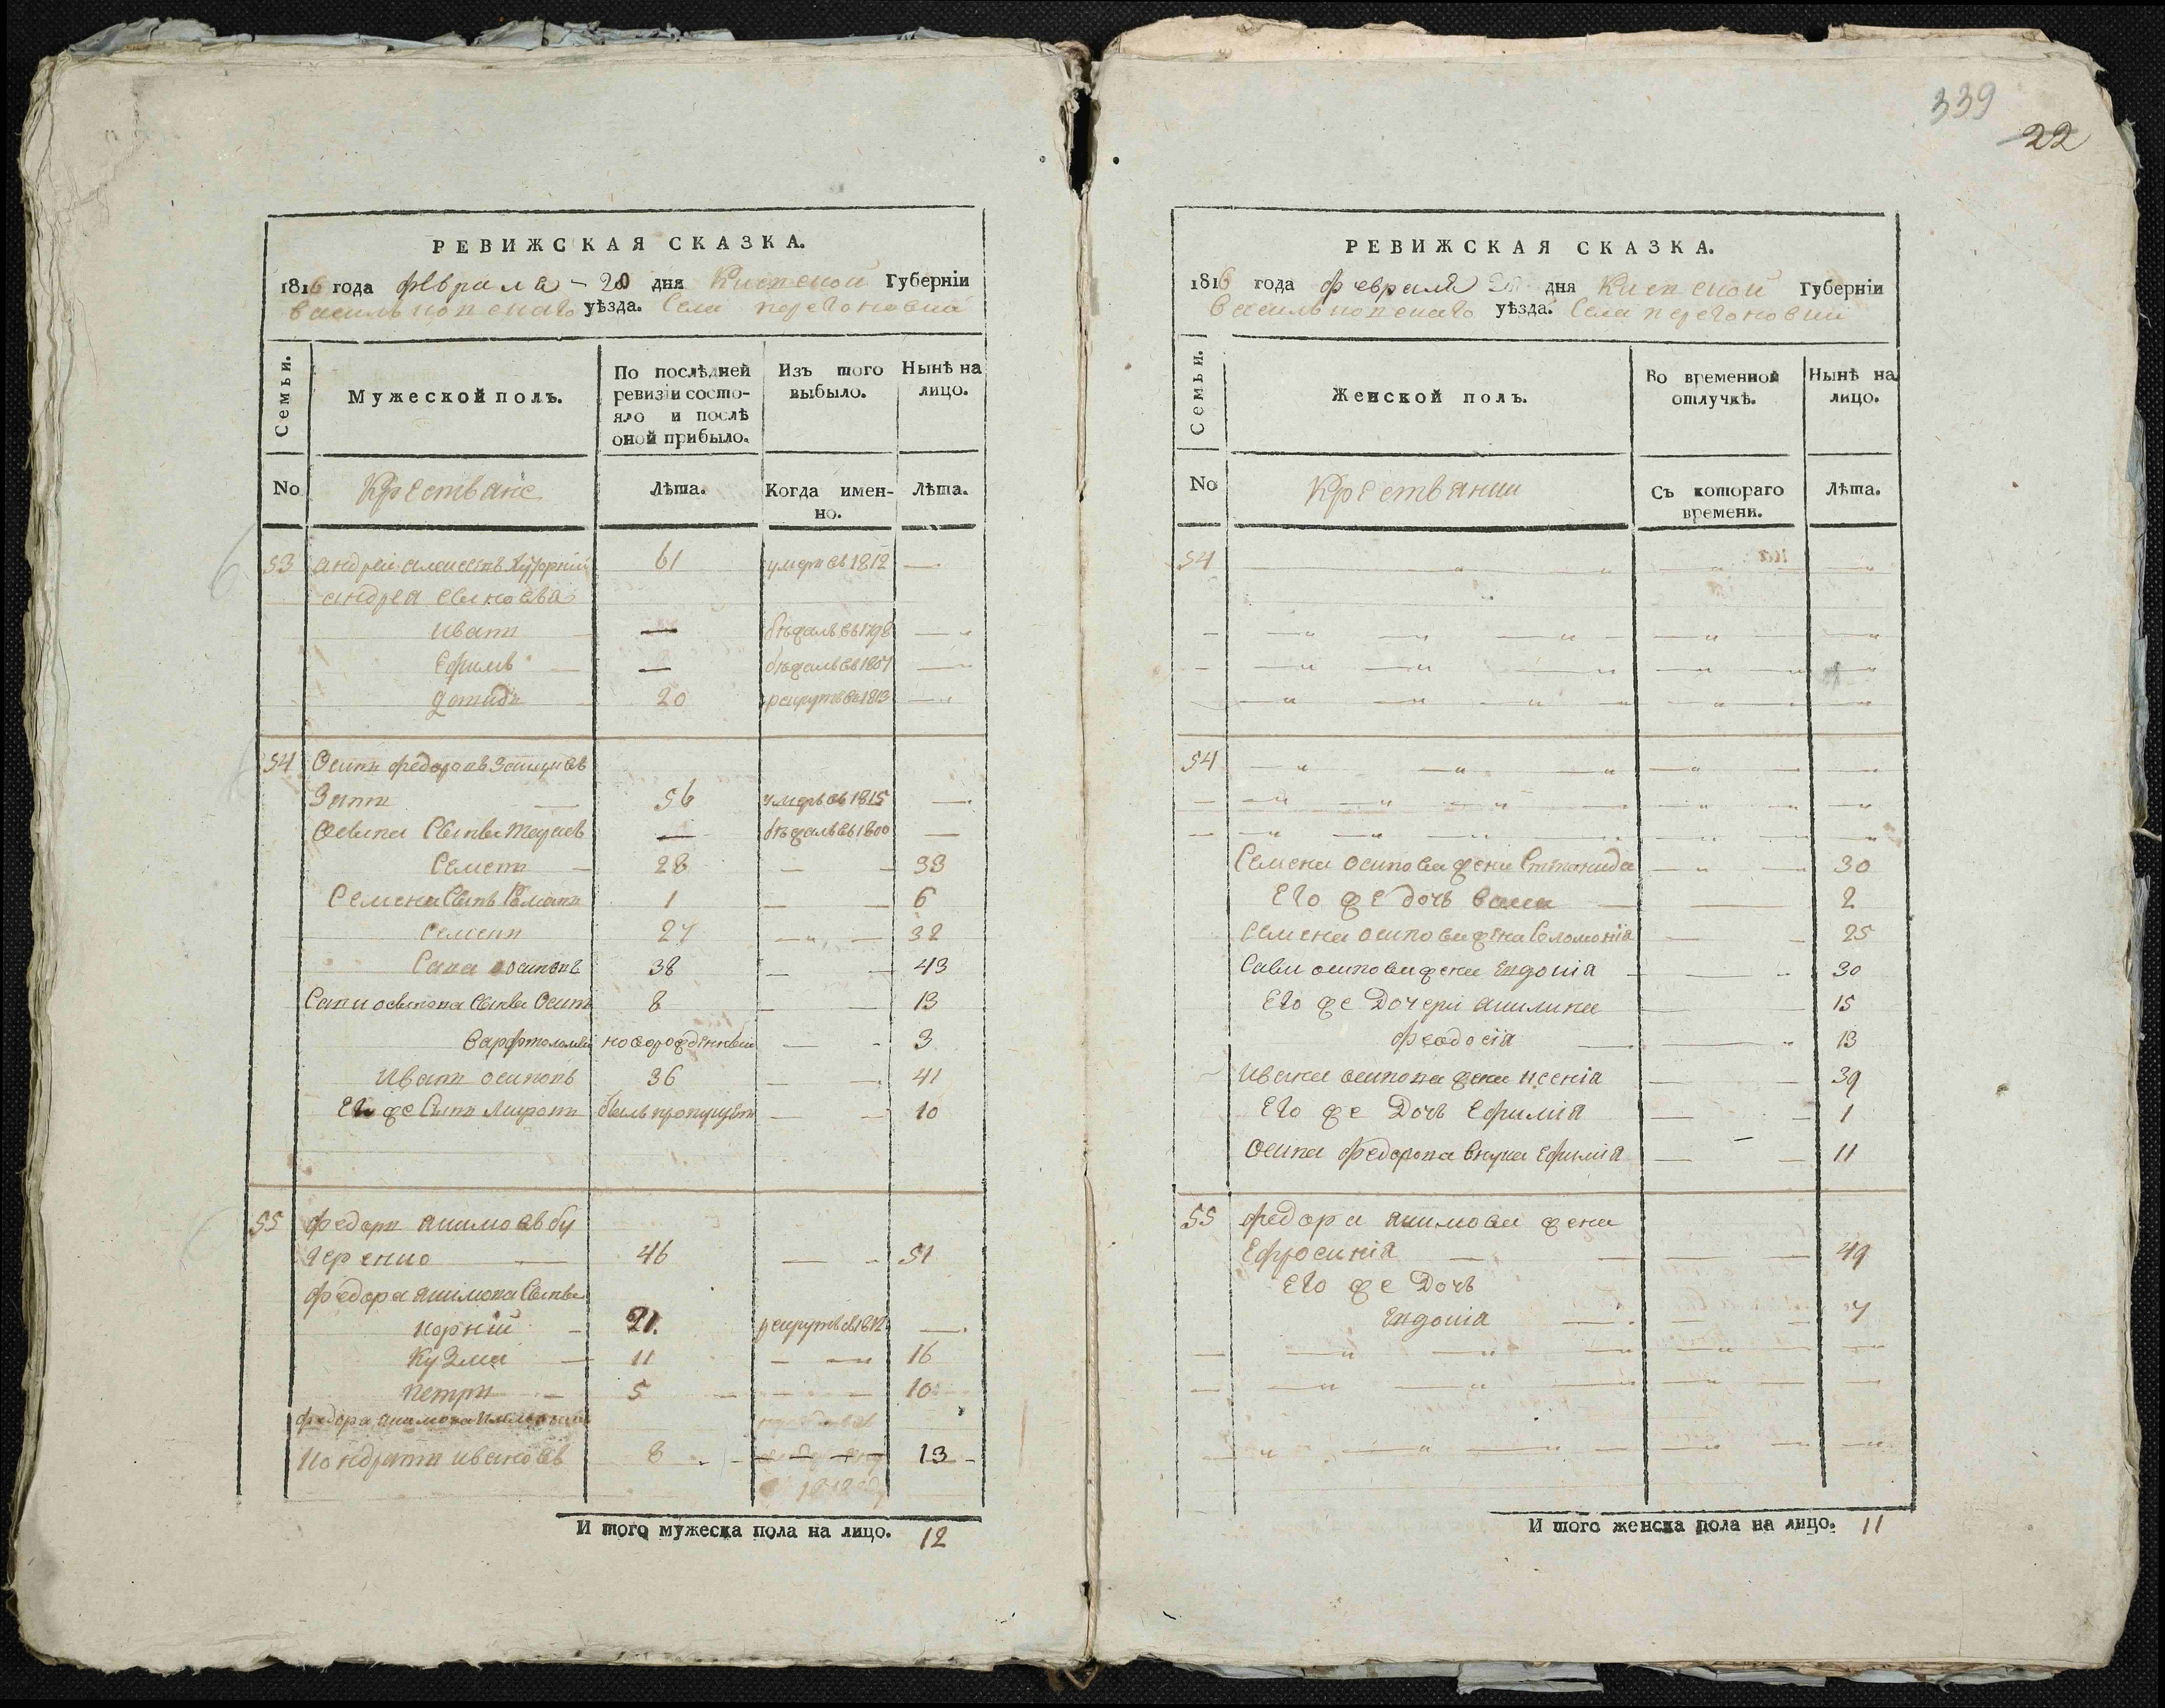 339
22
РЕВИЖСКАЯ СКАЗКА.
1816 года февраля - 20 дня Киевской Губерніи
васильковскаго уѣзда. Села перегоновки
Семьи. Мужеской полъ. По послѣдней ревизіи состояло и послѣ оной прибыло. Изъ того выбыло. Нынѣ на лицо.
No Крестьяне Лѣта. Когда именно. Лѣта.
53 андрей алексеевъ 61 умеръ въ 1812 —
андрея сыновья
иванъ — бѣжалъ въ 1798 —
Ефимъ — бѣжалъ въ 1801 —
20 рекрутъ въ 1813 —
54 Осипъ федоровъ
56 умеръ въ 1815 —
Осипа Сынья — бѣжалъ въ 1800 —
Семенъ 28 — 33
Семена Сынъ Романъ 1 — 6
Семенъ 27 — 32
Сава осиповъ 38 — 43
Савы осипова Сынья Осипъ 8 — 13
варфтоломей новорожденный — 3
иванъ осиповъ 36 — 41
Его же Сынъ миронъ былъ пропущенъ — 10
55 федоръ якимовъ бу
46 — 51
федора якимова Сынья
корній 21. рекрутъ въ 1812 —
Кузма 11 — 16
петръ 5 — 10
федора якимова
кондратъ ивановъ 8 — 13
И того мужеска пола на лицо. 12
РЕВИЖСКАЯ СКАЗКА.
1816 года февраля 20 дня Киевской Губерніи
васильковскаго уѣзда. Села перегоновки
Семьи. Женской полъ. Во временной отлучкѣ. Нынѣ на лицо.
No Крестьянки Съ котораго времени. Лѣта.
54
54
Семена осипова жена Степанида — 30
Его же дочь — 2
Семена осипова жена Соломонія — 25
Савы осипова жена Евдокія — 30
Его же Дочери акилина — 15
феодосія — 13
ивана осипова жена ксенія — 39
Его же Дочь Ефимія — 1
Осипа федорова внука Ефимія — 11
55 федора якимова жена
Ефросинія — 49
Его же Дочь
Евдокія — 7
И того женска пола на лицо. 11